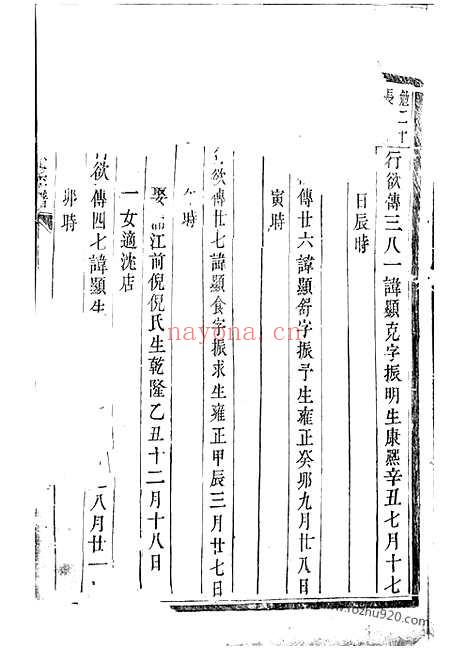 勉二十
長
行欲傳三八一諱顯克字振明生康熈辛丑七月十七
日辰時
傳廿六諱顯舒字振予生雍正癸卯九月廿八日
寅時
欲傳廿七諱顯食字振求生雍正甲辰三月廿七日
時
娶 江前倪倪氏生乾隆乙丑十二月十八日
一女適沈店
欲傳四七諱顯生 八月廿一
卯時
nayona.cn
www.fozhu979.com